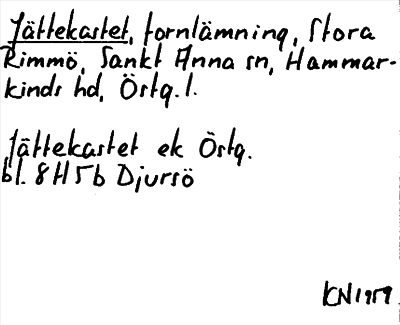 Jättekastet, fornlämning, Stora
Rimmö, Sankt Anna sn, Hammar-
kinds hd, Östg. l.
Jättekastet ek Östg.
bl. 8H5b Djursö
KN 1959